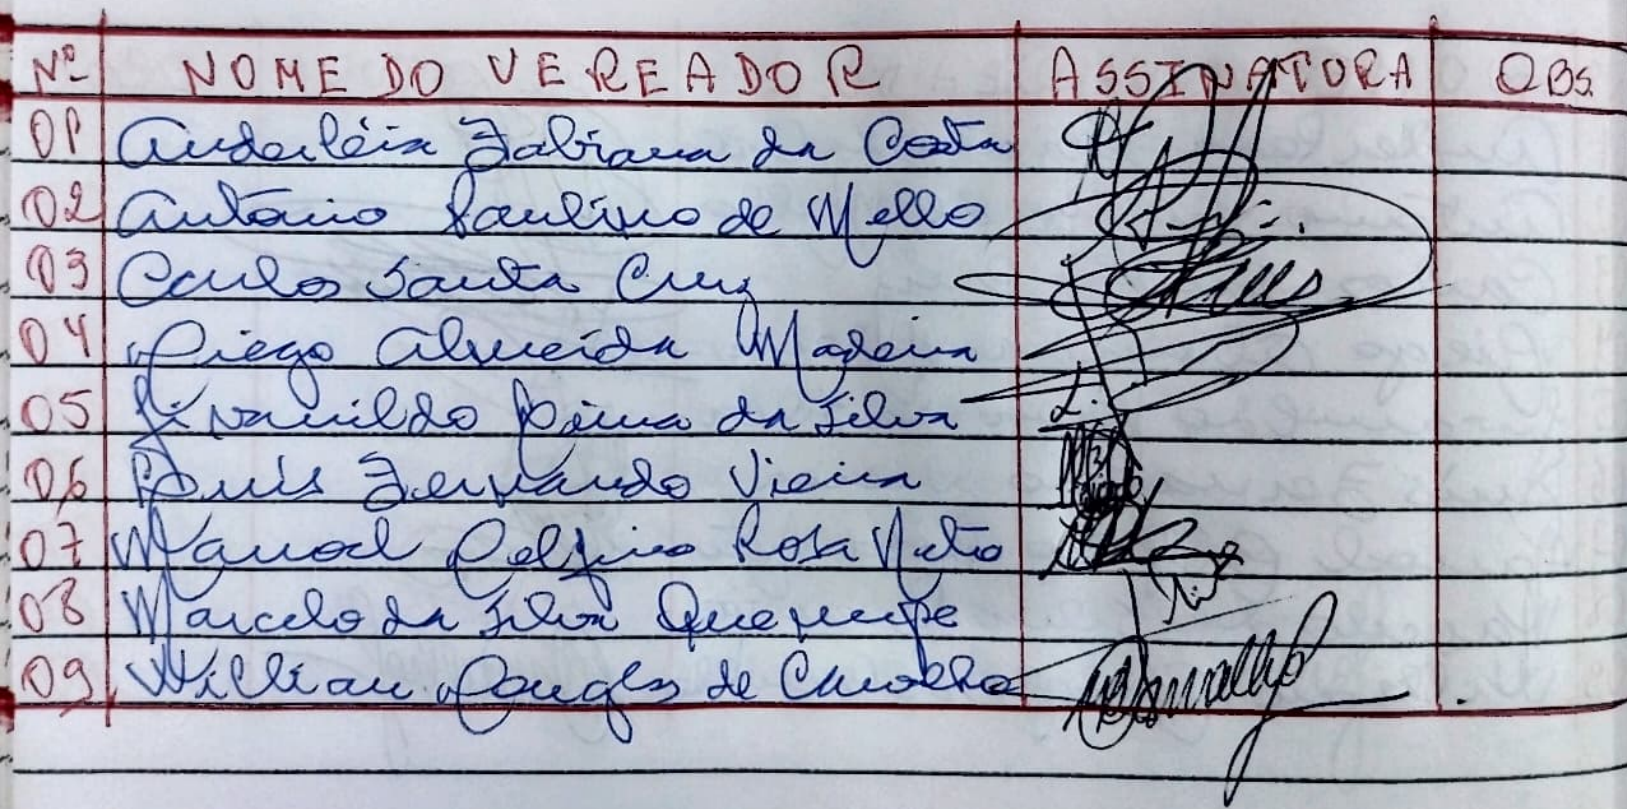 Nº NOME DO VEREADOR ASSINATURA OBS.
01 Anderléia Fabiana da Costa
02 Antônio Paulino de Mello
03 Carlos Santa Cruz
04 Diego Almeida Madeira
05 Livanildo Lima da Silva L.
06 Luís Fernando Vieira
07 Manoel Delfino Rosa Neto
08 Marcelo da Silva
09 Willian Douglas de Carvalho Carvalho